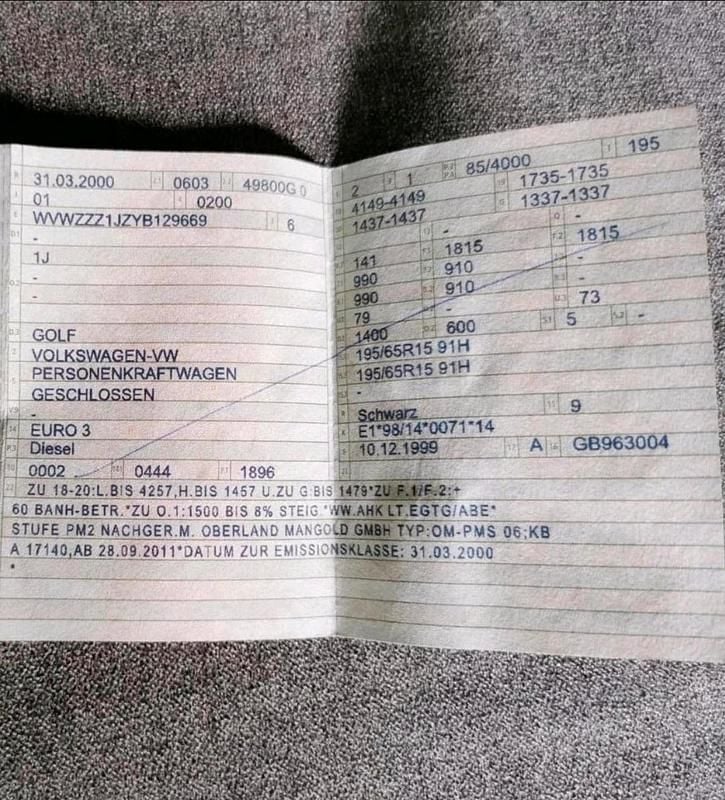 31.03.2000 0603 49800G 0
01 0200
WVWZZZ1JZYB129669 6
-
1J
-
-
GOLF
VOLKSWAGEN-VW
PERSONENKRAFTWAGEN
GESCHLOSSEN
-
EURO 3
Diesel
0002 0444 1896
2 1 85/4000 195
4149-4149 1735-1735
1437-1437 1337-1337
- -
141 1815 1815
990 910 -
990 910 -
79 - 73
1400 600 5 -
195/65R15 91H
195/65R15 91H
-
Schwarz 9
E1*98/14*0071*14
10.12.1999 A GB963004
ZU 18-20:L.BIS 4257,H.BIS 1457 U.ZU G:BIS 1479*ZU F.1/F.2:+
60 BANH-BETR.*ZU O.1:1500 BIS 8% STEIG.*WW.AHK LT.EGTG/ABE*
STUFE PM2 NACHGER.M. OBERLAND MANGOLD GMBH TYP:OM-PMS 06;KB
A 17140,AB 28.09.2011*DATUM ZUR EMISSIONSKLASSE: 31.03.2000
*